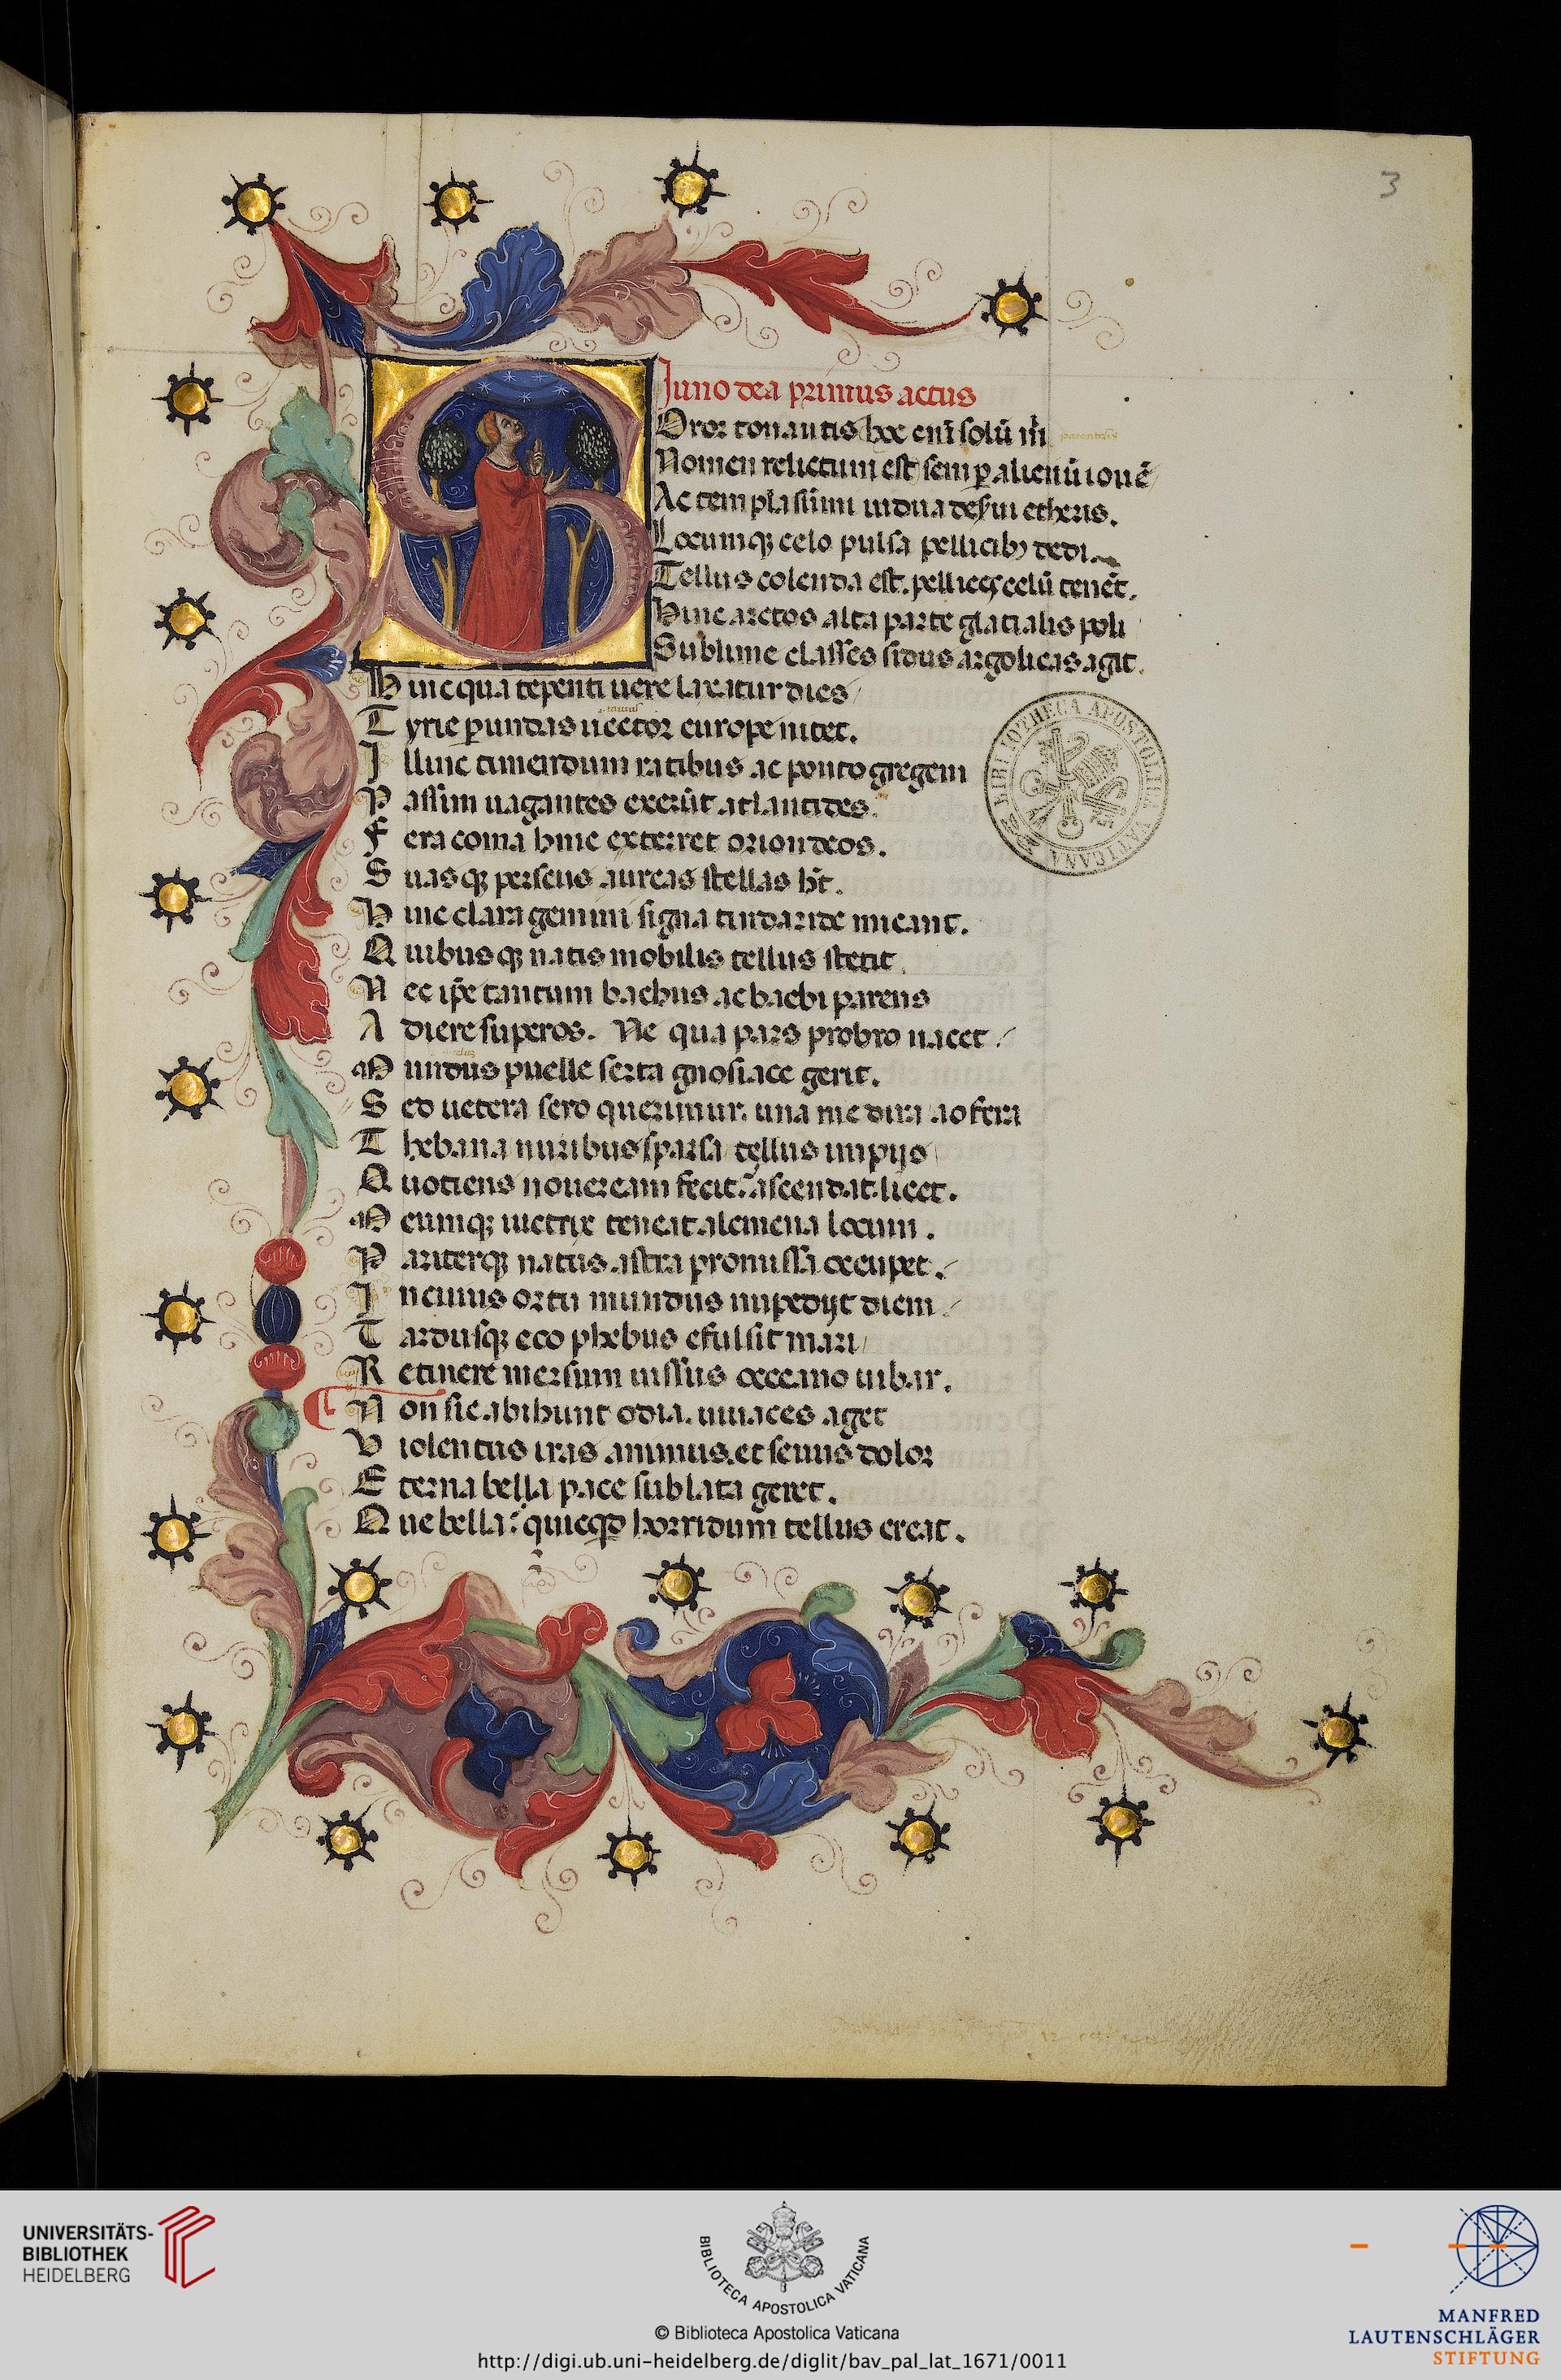 3
Juno dea primus actus
Soror tonantis hoc eni solū m̄
Nomen relictum est semp alienū iouē
Ac templa sūmi uidua deserui etheris.
Locumq; celo pulsa pellicib; dedi
Tellus colenda est. pellices celū tenēt.
Hinc arctos alta parte glacialis poli
Sublime classes sidus argolicas agit.
Hinc qua tepenti uere laxatur dies
Tyrie p undas uector europe nitet.
Illinc timendum ratibus ac ponto gregem
Passim uagantes exerūt atlantides.
Fera coma hinc exterret orion deos.
Suasq; perseus aureas stellas h̄t.
Hinc clara gemini signa tindaride micant.
Quibusq; natis mobilis tellus stetit.
Nec ip̄e tantum bachus ac bachi parens
Adiere superos. Ne qua pars probro uacet
Mundus puelle serta gnosiace gerit.
Sed uetera sero querimur. una me dira ac fera
Thebana nuribus sparsa tellus impijs
Quotiens nouercam fecit. ascendat licet.
Meumq; uictrix teneat alcmena locum.
Pariterq; natus astra promissa occupet.
In cuius ortu mundus impedijt diem
Tardusq; eoo phebus efulsit mari
Retinere mersum iussus occeano iubar.
Non sic abibunt odia. uiuaces aget
Violentus iras animus. et seuus dolor
Eterna bella pace sublata geret.
Que bella: quicqd horridum tellus creat.
BIBLIOTHECA APOSTOLICA VATICANA
UNIVERSITÄTS-
BIBLIOTHEK
HEIDELBERG
BIBLIOTECA APOSTOLICA VATICANA
© Biblioteca Apostolica Vaticana
http://digi.ub.uni-heidelberg.de/diglit/bav_pal_lat_1671/0011
MANFRED
LAUTENSCHLÄGER
STIFTUNG